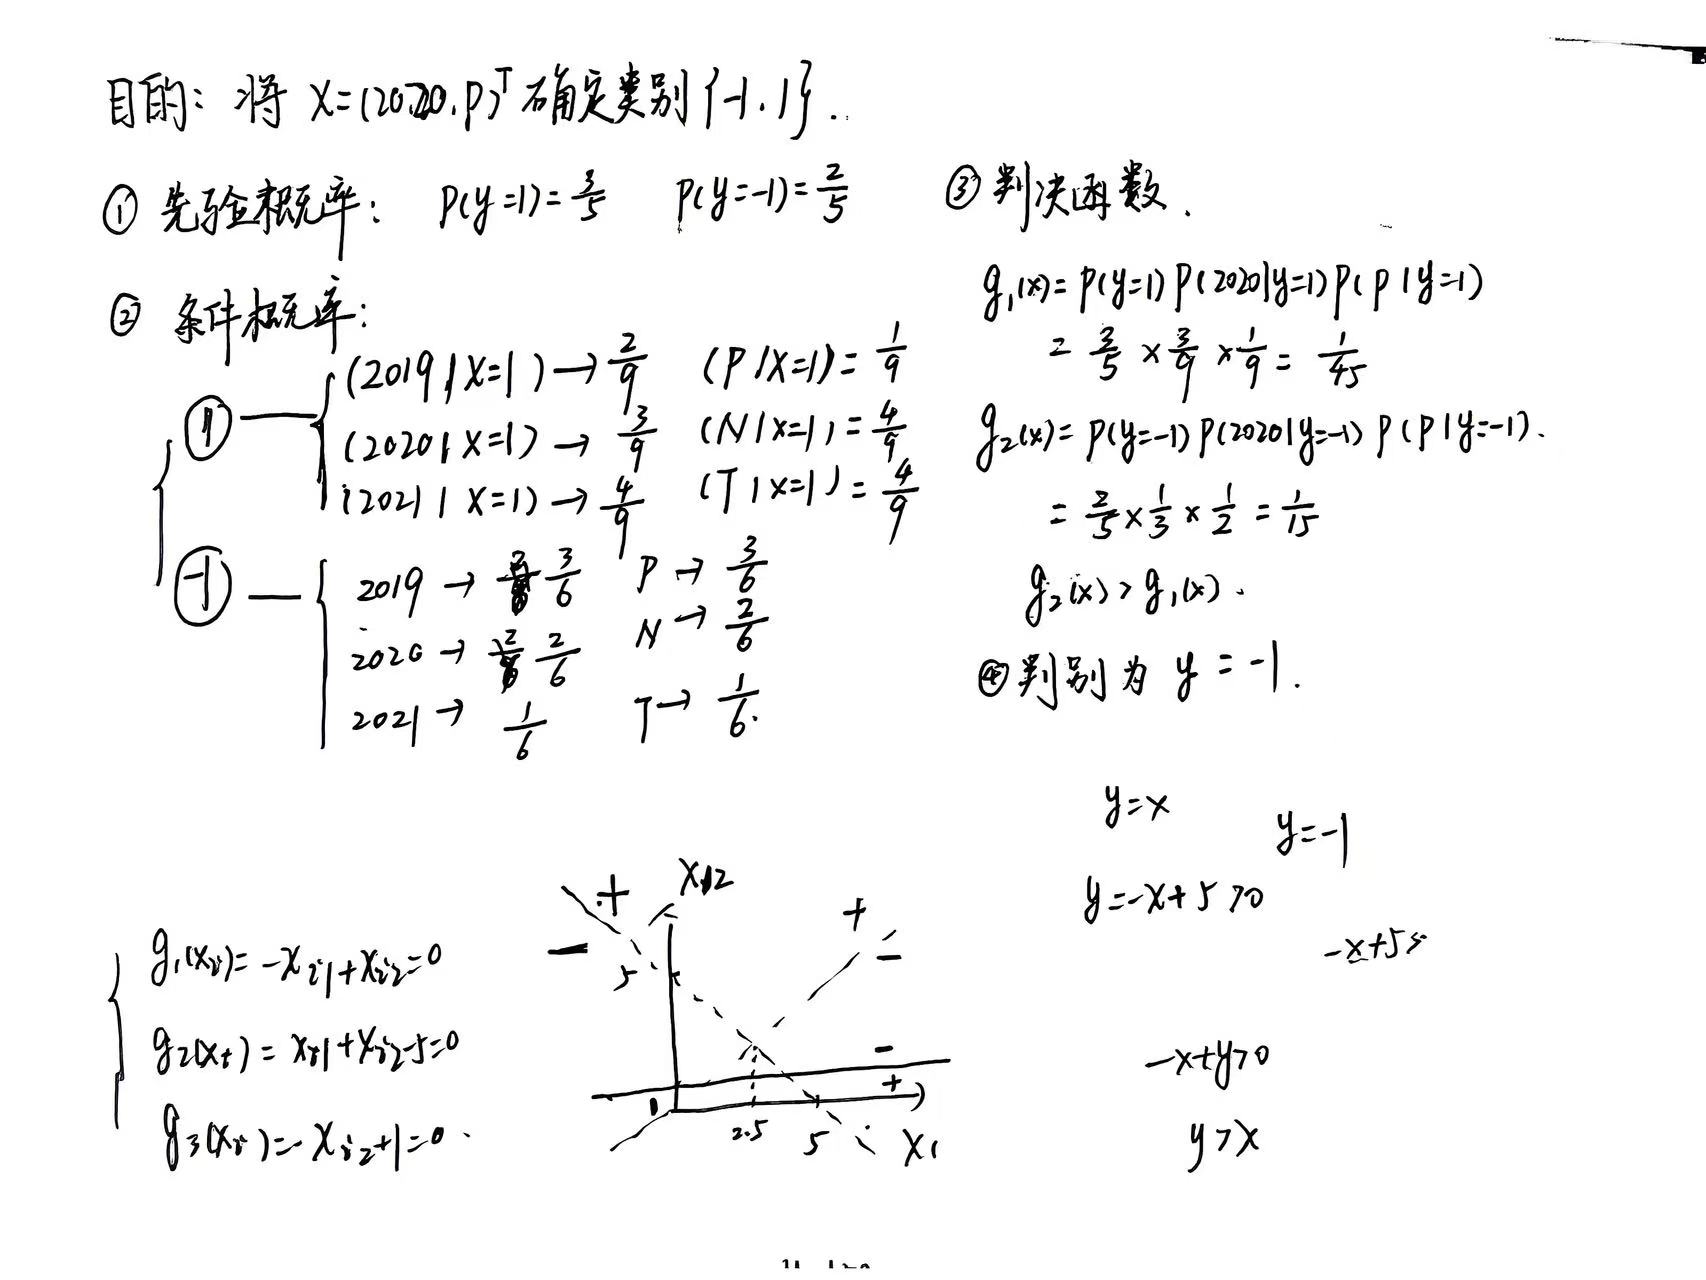 目的：将 X=(2020,P)ᵀ 确定类别{-1,1}.
① 先验概率： P(y=1)=3/5 P(y=-1)=2/5
② 条件概率：
① { (2019|X=1)→2/9 (P|X=1)=1/9
(2020|X=1)→3/9 (N|X=1)=4/9
(2021|X=1)→4/9 (T|X=1)=4/9
-1 { 2019→3/6 P→3/6
2020→2/6 N→2/6
2021→1/6 T→1/6.
③ 判决函数.
g₁(x)=P(y=1)P(2020|y=1)P(P|y=1)
=3/5×3/9×1/9=1/45
g₂(x)=P(y=-1)P(2020|y=-1)P(P|y=-1).
=2/5×1/3×1/2=1/15
g₂(x)>g₁(x).
④ 判别为 y=-1.
y=x
y=-1
y=-x+5>0
-x+5
-x+y>0
y>x
g₁(xᵢ)=-xᵢ₁+xᵢ₂=0
g₂(xᵢ)=xᵢ₁+xᵢ₂-5=0
g₃(xᵢ)=-xᵢ₂+1=0.
+ X₂
- +
5 -
-
1 +
2.5 5 X₁